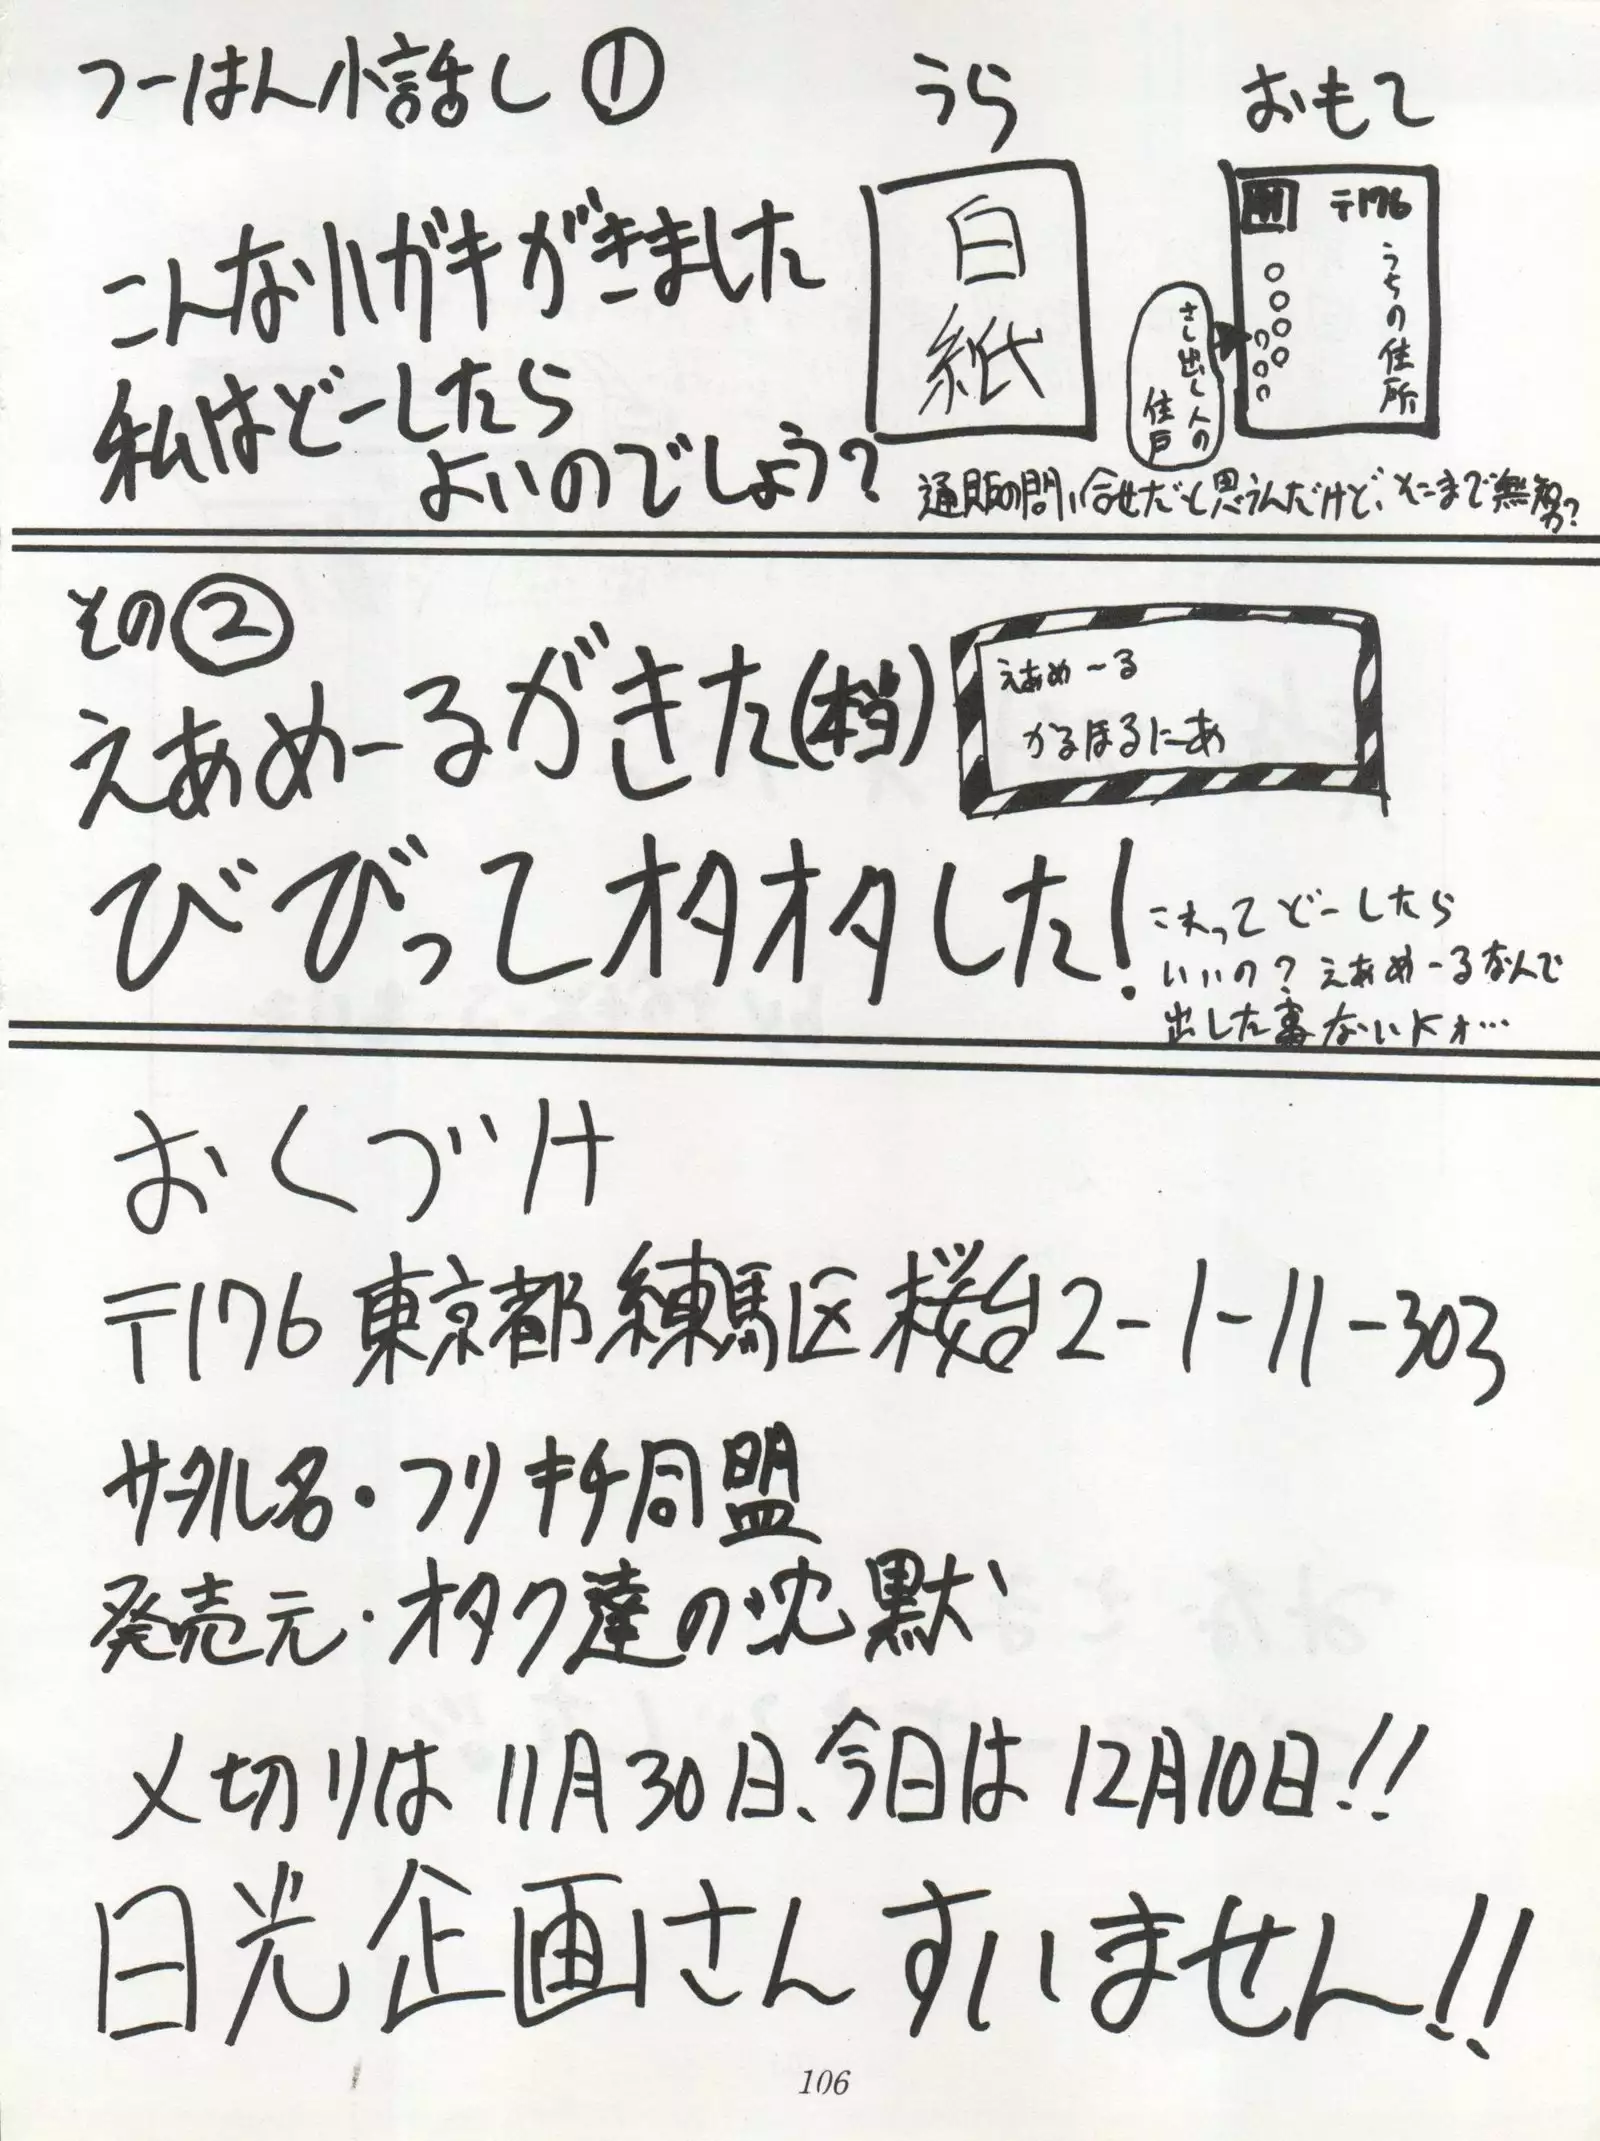 つーはん小話し ①
こんなハガキがきました
私はどーしたら
よいのでしょう?
うら
白紙
おもて
〒176
うちの住所
○○○○○○○
さし出し人の
住戸
通販の問い合せだと思うんだけど、そこまで無智?
その②
えあめーるがきた(本当)
えあめーる
かるほるにーあ
びびってオタオタした!
これってどーしたら
いいの?えあめーるなんで
出した事ないよォ…
おくづけ
〒176 東京都練馬区桜台2-1-11-303
サークル名・フリキチ同盟
発売元・オタク達の沈黙
〆切りは11月30日、今日は12月10日!!
日光企画さんすいません!!
106